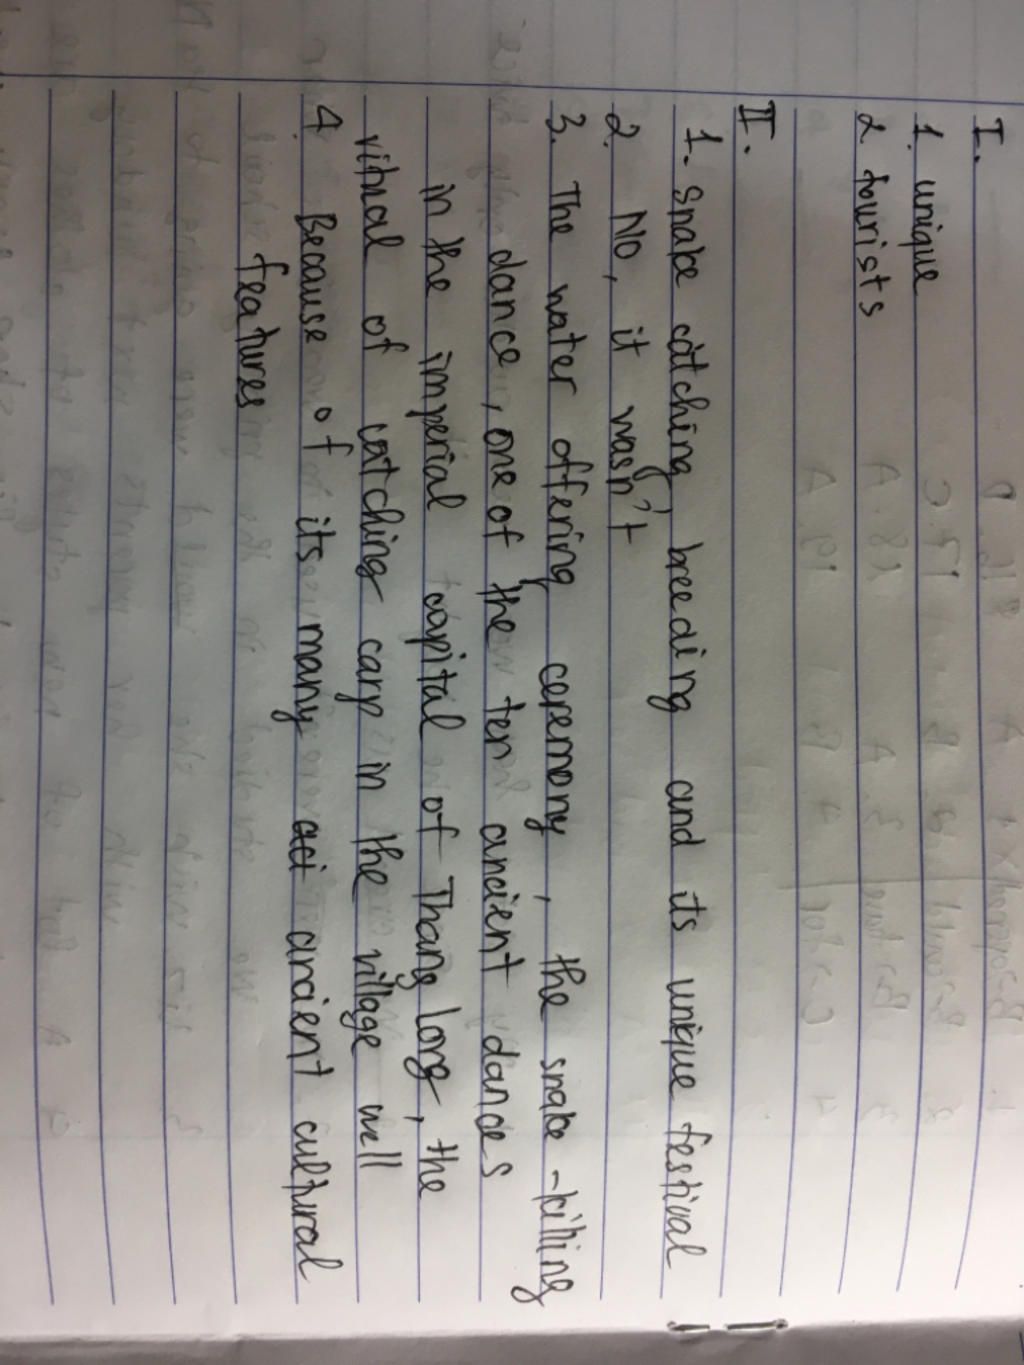 I.
1. unique
2. tourists
II.
1. snake catching, breeding and its unique festival
2. No, it wasn't
3. The water offering ceremony, the snake-killing
dance, one of the ten ancient dances
in the imperial capital of Thang Long, the
ritual of catching carp in the village well
4. Because of its many ancient cultural
features